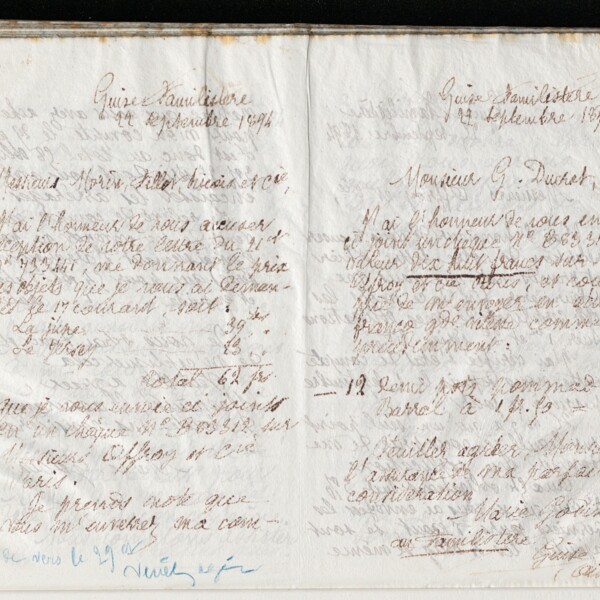 Guise Familistère
22 septembre 1894
Messieurs Morin, Fillot, et Cie,
J'ai l'honneur de vous accuser
réception de votre lettre du 21 et
N° 73341, me donnant le prix
des objets que je vous ai deman-
dés le 17 courant, soit :
La jupe 39 "
Le jersey 23 "
Total 62 frs
que je vous envoie ci joints
en un chèque N° sur
Messieurs Offroy et Cie
Paris.
Je prends note que
vous m'enverrez ma com-
de vers le 29 ct
Guise Familistère
22 septembre 189
Monsieur G. Ducrot,
J'ai l'honneur de vous en
ci joint un chèque N°
valeur dix huit francs sur
Offroy et Cie Paris, et vous
prie de m'envoyer en
franco gare même comme
précédemment :
— 12 demi pots
Barral à 1 fr. 50 =
Veuillez agréer, Monsieur
l'assurance de ma parfai
considération
Marie
au Familistère
Guise